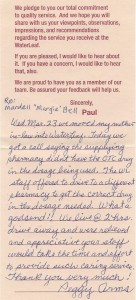 We pledge to you our total commitment
to quality service. And we hope you will
share with us your viewpoints, observations,
impressions, and recommendations
regarding the service you receive at the
WaterLeaf.
If you are pleased, I would like to hear about
it. If you have a concern, I would like to hear
that, also.
We are proud to have you as a member of our
team. Be assured your feedback will help us.
Sincerely,
Paul
Re: Mardell "Margie" Bell
Wed. Mar. 23 we moved my mother
in-law into Waterleaf. Today we
got a call saying the supplying
pharmacy didn't have the OTC drug
in the dosage being used. The WL
staff offered to drive to a different
pharmacy to get the correct drug
in the dosage needed. What a
godsend!! We live @ 2 hrs.
drive away and were relieved
and appreciative your staff
would take the time and effort
to provide such caring service.
Thank you very much.
Peggy Arms